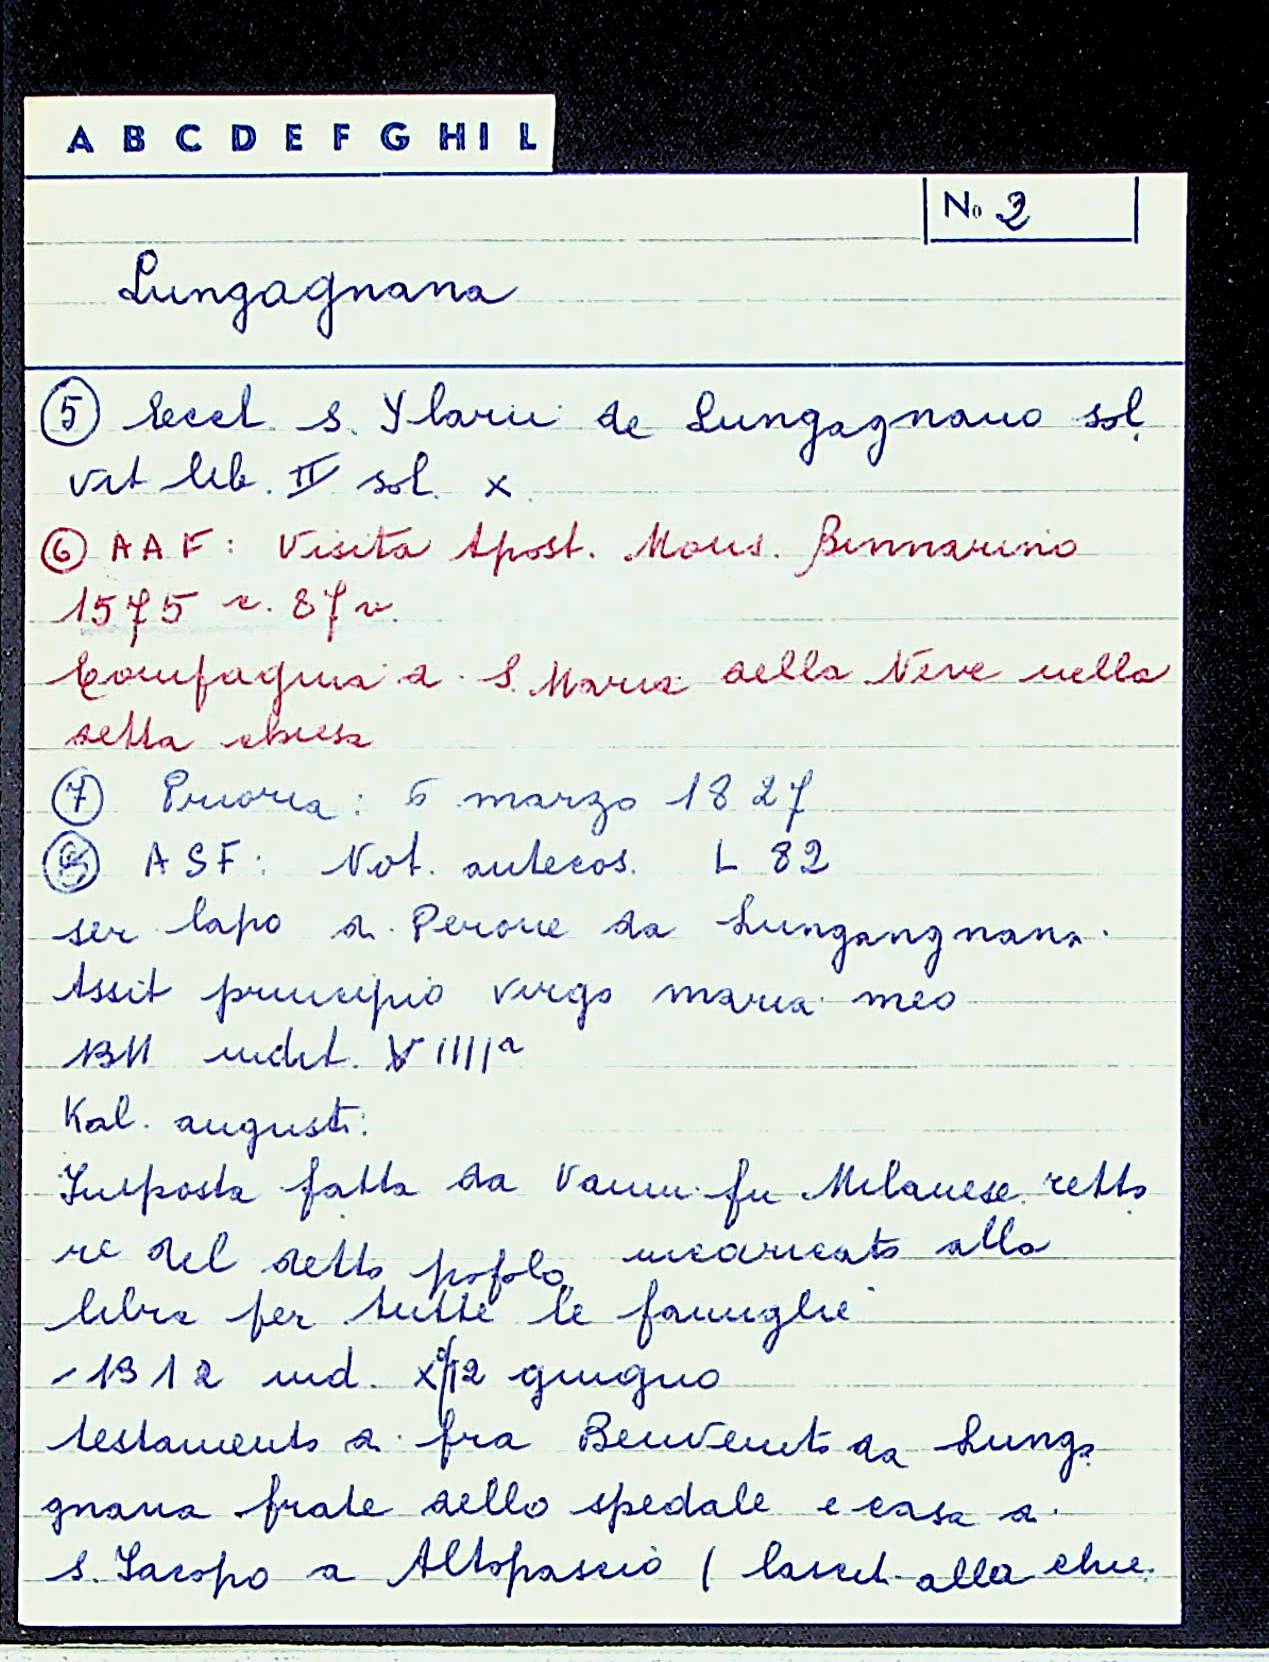 A B C D E F G H I L
No 2
Lungagnana
5 Eccl. s. Ylarii de Lungagnano sol
vit lib. II sol. x
6 AAF: Visita Apost. Mons. Binnarino
1575 c. 87v.
Compagnia di S. Maria della Neve nella
detta chiesa
7 Prioria: 6 marzo 1827
8 ASF: Not. antecos. L 82
ser Lapo di Perone da Lungangnana.
Assit principio virgo maria meo
1311 indit. VIIIIa
Kal. augusti:
Imposta fatta da Vanni fu Milanese retto
re del detto popolo incaricato alla
libra per tutte le famiglie
- 1312 ind. x 12 giugno
testamento di fra Benvenuto da Lunga
gnana frate dello spedale e casa di
S. Jacopo a Altopascio ( lascit. alla chie